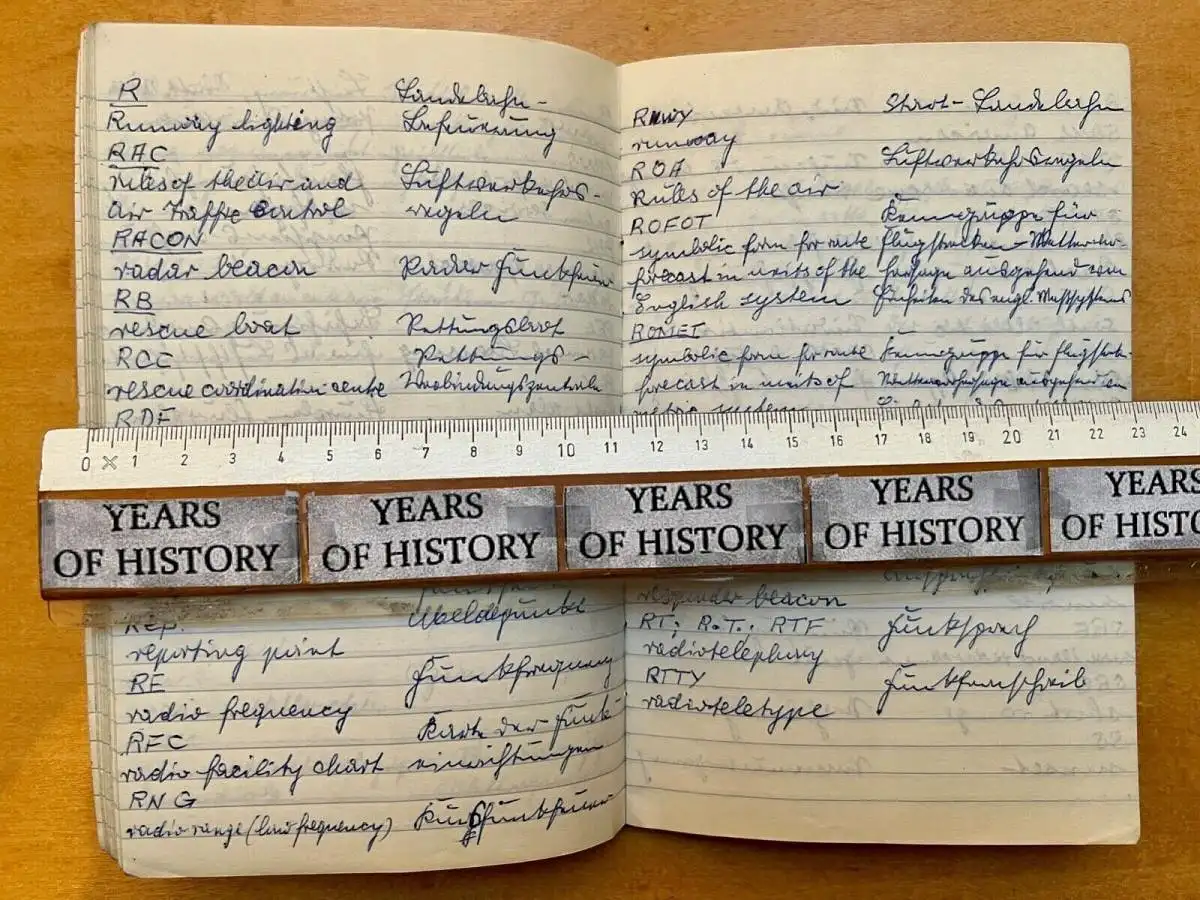 R Landebahn-
Runway lighting Befeuerung
RAC
rules of the air and Luftverkehrs-
air traffic control regeln
RACON
radar beacon Radar Funkfeuer
RB
rescue boat Rettungsboot
RCC Rettungs-
rescue coordination centre
RDF
Rep. Meldepunkt
reporting point
RF Funkfrequenz
radio frequency
RFC Karte der Funk-
radio facility chart einrichtungen
RNG
radio range (low frequency) Kursfunkfeuer
RWY Start-Landebahn
runway
ROA Luftverkehrsregeln
Rules of the air
ROFOT Kenngruppe für
symbolic form for route Flugstrecken-Wettervor-
forecast in units of the hersage ausgehend vom
English system Einheiten des engl. Maßsystems
ROMET
symbolic form for route Kenngruppe für Flugstreck-
forecast in units of Wettervorhersage ausgehend
metric system
0 1 2 3 4 5 6 7 8 9 10 11 12 13 14 15 16 17 18 19 20 21 22 23 24
YEARS OF HISTORY
YEARS OF HISTORY
YEARS OF HISTORY
YEARS OF HISTORY
YEARS
OF HISTO
responder beacon
RT; R.T.; RTF Funksprech
radiotelephony
RTTY Funkfernschreib
radioteletype